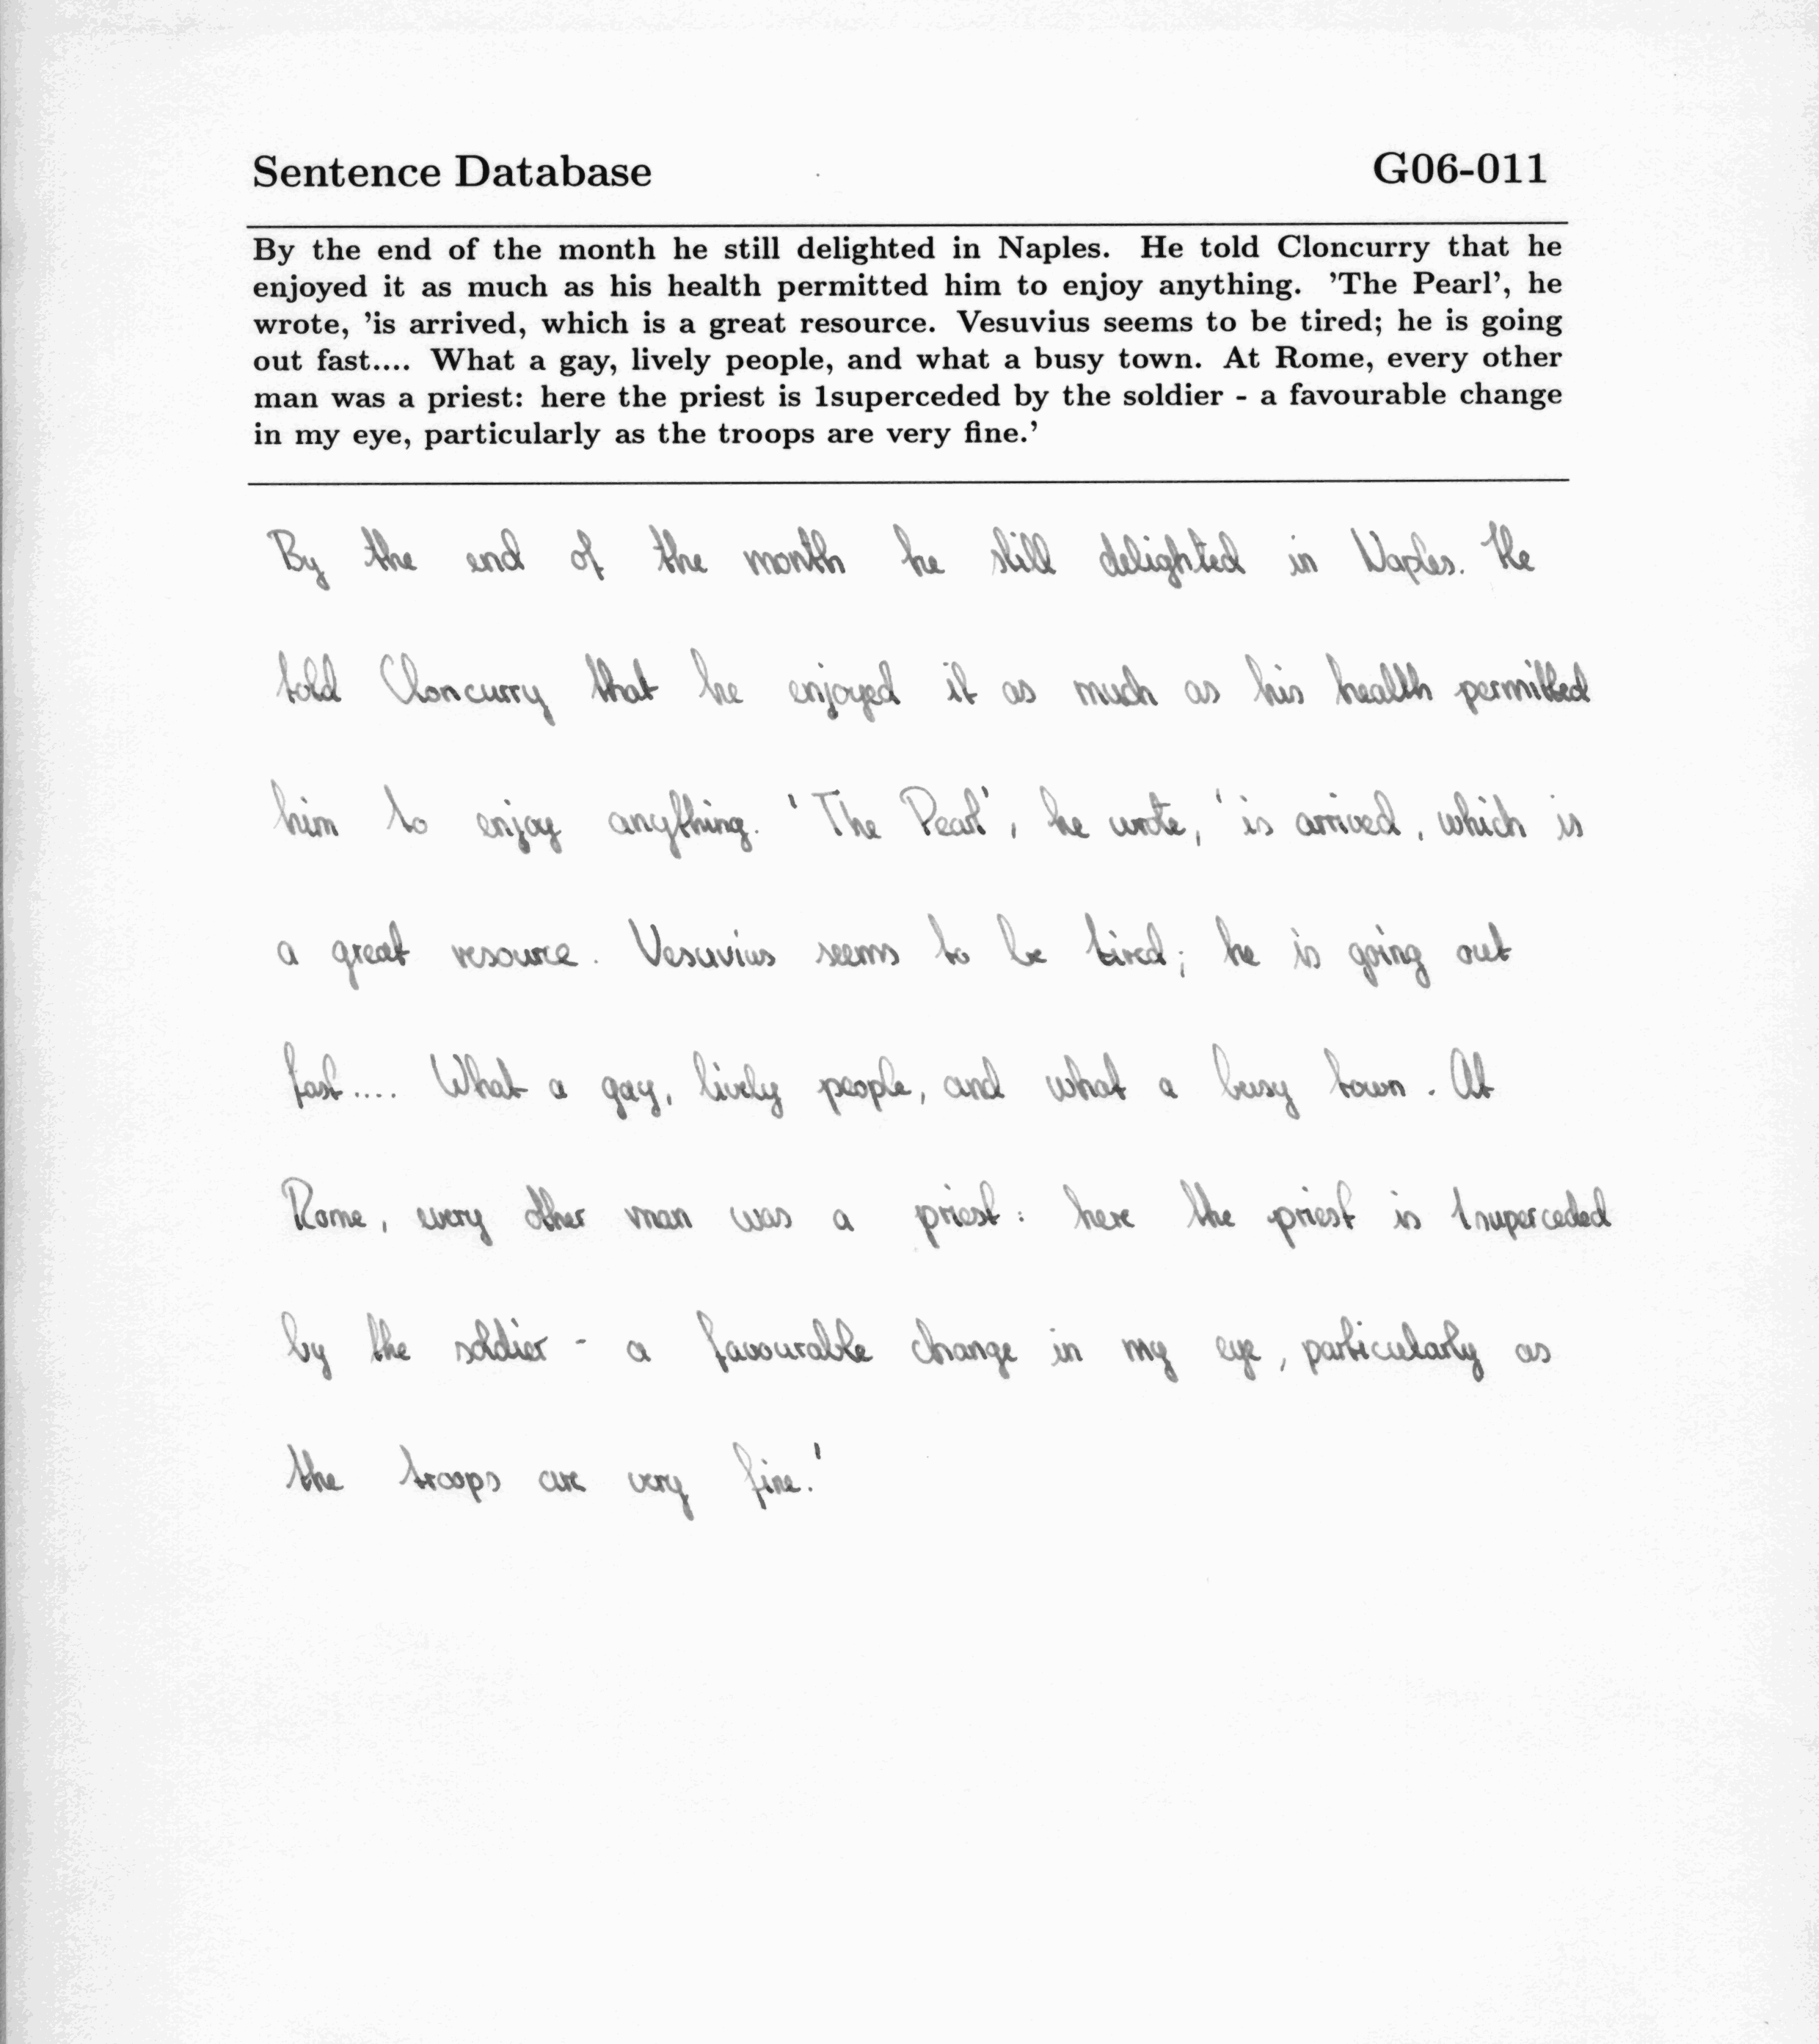 Sentence Database G06-011
By the end of the month he still delighted in Naples. He told Cloncurry that he
enjoyed it as much as his health permitted him to enjoy anything. 'The Pearl', he
wrote, 'is arrived, which is a great resource. Vesuvius seems to be tired; he is going
out fast.... What a gay, lively people, and what a busy town. At Rome, every other
man was a priest: here the priest is 1superceded by the soldier - a favourable change
in my eye, particularly as the troops are very fine.'
By the end of the month he still delighted in Naples. He
told Cloncurry that he enjoyed it as much as his health permitted
him to enjoy anything. 'The Pearl', he wrote, 'is arrived, which is
a great resource. Vesuvius seems to be tired; he is going out
fast.... What a gay, lively people, and what a busy town. At
Rome, every other man was a priest: here the priest is 1superceded
by the soldier - a favourable change in my eye, particularly as
the troops are very fine.'